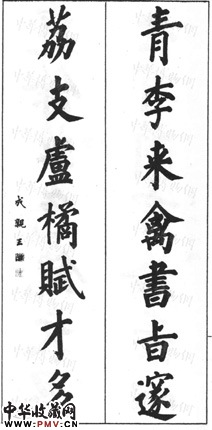 青李来禽書旨邃
荔支盧橘賦才多
成親王
中华收藏网
www.PMV.cn